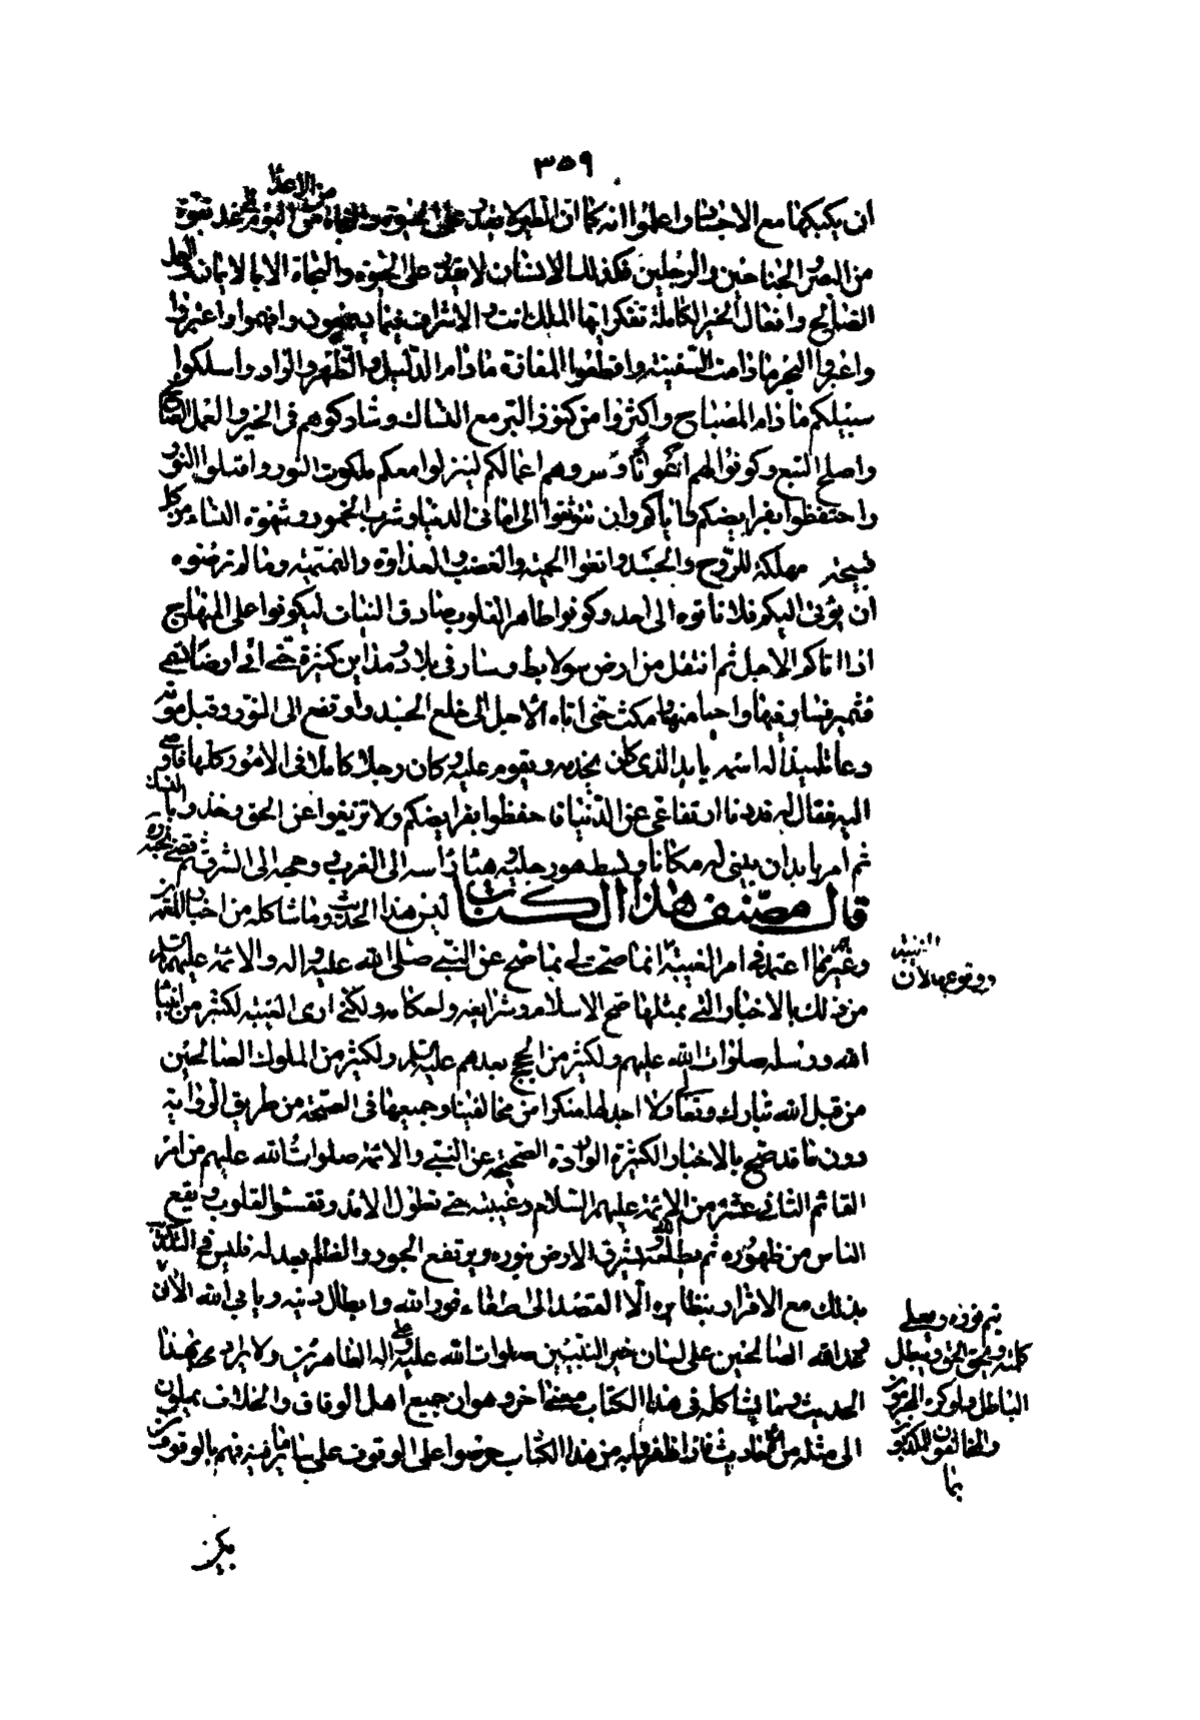 ٣٥٩
من الأعداء
ان يكبكبها مع الاجناد واعلموا انه كما ان الطير لا يقدر على الحيوة والنجاة من بقوة
من البصر والجناحين والرجلين فكذلك الانسان لا يقدر على الحيوة والنجاة الا بالايمان والعمل
الصالح وافعال الخير الكاملة تفكر ايها الملك انت والاشراف فيما وافهموا واعتبروا
واعبروا البحر ما دامت السفينة واقطعوا المفازة ما دام الدليل والظهر والزاد واسلكوا
سبيلكم ما دام المصباح واكثروا من كنوز البر مع النساك وشاركوهم في الخير والعمل الصالح
واصلحوا التبع وكونوا لهم اعوانا ومروهم اعمالكم لينزلوا معكم ملكوت النور واقبلوا النور
واحتفظوا بفرايضكم واياكم وان تتوثقوا الى اماني الدنيا وشرب الخمور وشهوة النساء من كل
قبيحة مهلكة للروح والجسد واتقوا الحمية والغضب والعداوة والنميمة وما لم ترضوه
ان يؤتى اليكم فلا تاتوه الى احد وكونوا طاهر القلوب صادق النيات لتكونوا على المنهاج
اذا اتاكم الاجل ثم انتقل من ارض سولابط وسار في بلاد ومداين كثيرة حتى اتى ارضا تسمى
قشمير فسار فيها واحيا ميتها ومكث حتى اتاه الاجل الذي خلع الجسد وارتفع الى النور وقبل موته
دعا تلميذا له اسمه يابد الذي كان يخدمه ويقوم عليه وكان رجلا كاملا في الامور كلها فاوصى
اليه فقال له قد دنا ارتفاعي عن الدنيا فاحفظوا بفرايضكم ولا تزيغوا عن الحق وخذوا بالنسك
ثم امر يابد ان يبني له مكانا وبسط هو رجليه وهيأ راسه الى الغرب ووجهه الى الشرق ثم قضى نحبه
قال مصنف هذا الكتاب ليس هذا الحديث وما شاكله من اخبار المعمرين
وغيرهم مما اعتمده في امر الغيبة لان الغيبة انما صحت لي بما صح عن النبي صلى الله عليه واله والائمة عليهم السلم
من ذلك بالاخبار التي بمثلها صح الاسلام وشرايعه واحكامه ولكني ارى الغيبة لكثير من انبياء
الله ورسله صلوات الله عليهم ولكثير من الحجج بعدهم عليهم السلم ولكثير من الملوك الصالحين
من قبل الله تبارك وتعالى ولا اجد لها منكرا من مخالفينا وجميعها في الصحة من طريق الرواية
دون ما قد صح بالاخبار الكثيرة الواردة الصحيحة عن النبي والائمة صلوات الله عليهم من امر
القائم الثاني عشر من الائمة عليهم السلام وغيبته حتى تطول الامد وتقسو القلوب ويقع
الناس من ظهوره ثم يطلعه الله فتشرق الارض بنوره ويرتفع الجور والظلم بعدله فليس في التكذيب
بذلك مع الاقرار بنظائره الا القصد الى اطفاء نور الله وابطال دينه ويابى الله الا ان
محمد الله الصالحين على لسان خير النبيين صلوات الله عليه وعلى اله الطاهرين ولا يراد بهذا
الحديث وما يشاكله في هذا الكتاب معنى اخر وهو ان جميع اهل الوفاق والخلاف يميلون
الى مثله من الاحاديث فاذا ظفروا به من هذا الكتاب حرصوا على الوقوف على سائر ما فيه فهم بالوقوف
ووقوعها لان
يتم نوره ويعلي
كلمته ويحق الحق ويبطل
الباطل ولو كره المجرمون
والمخالفون المكذبون
بما